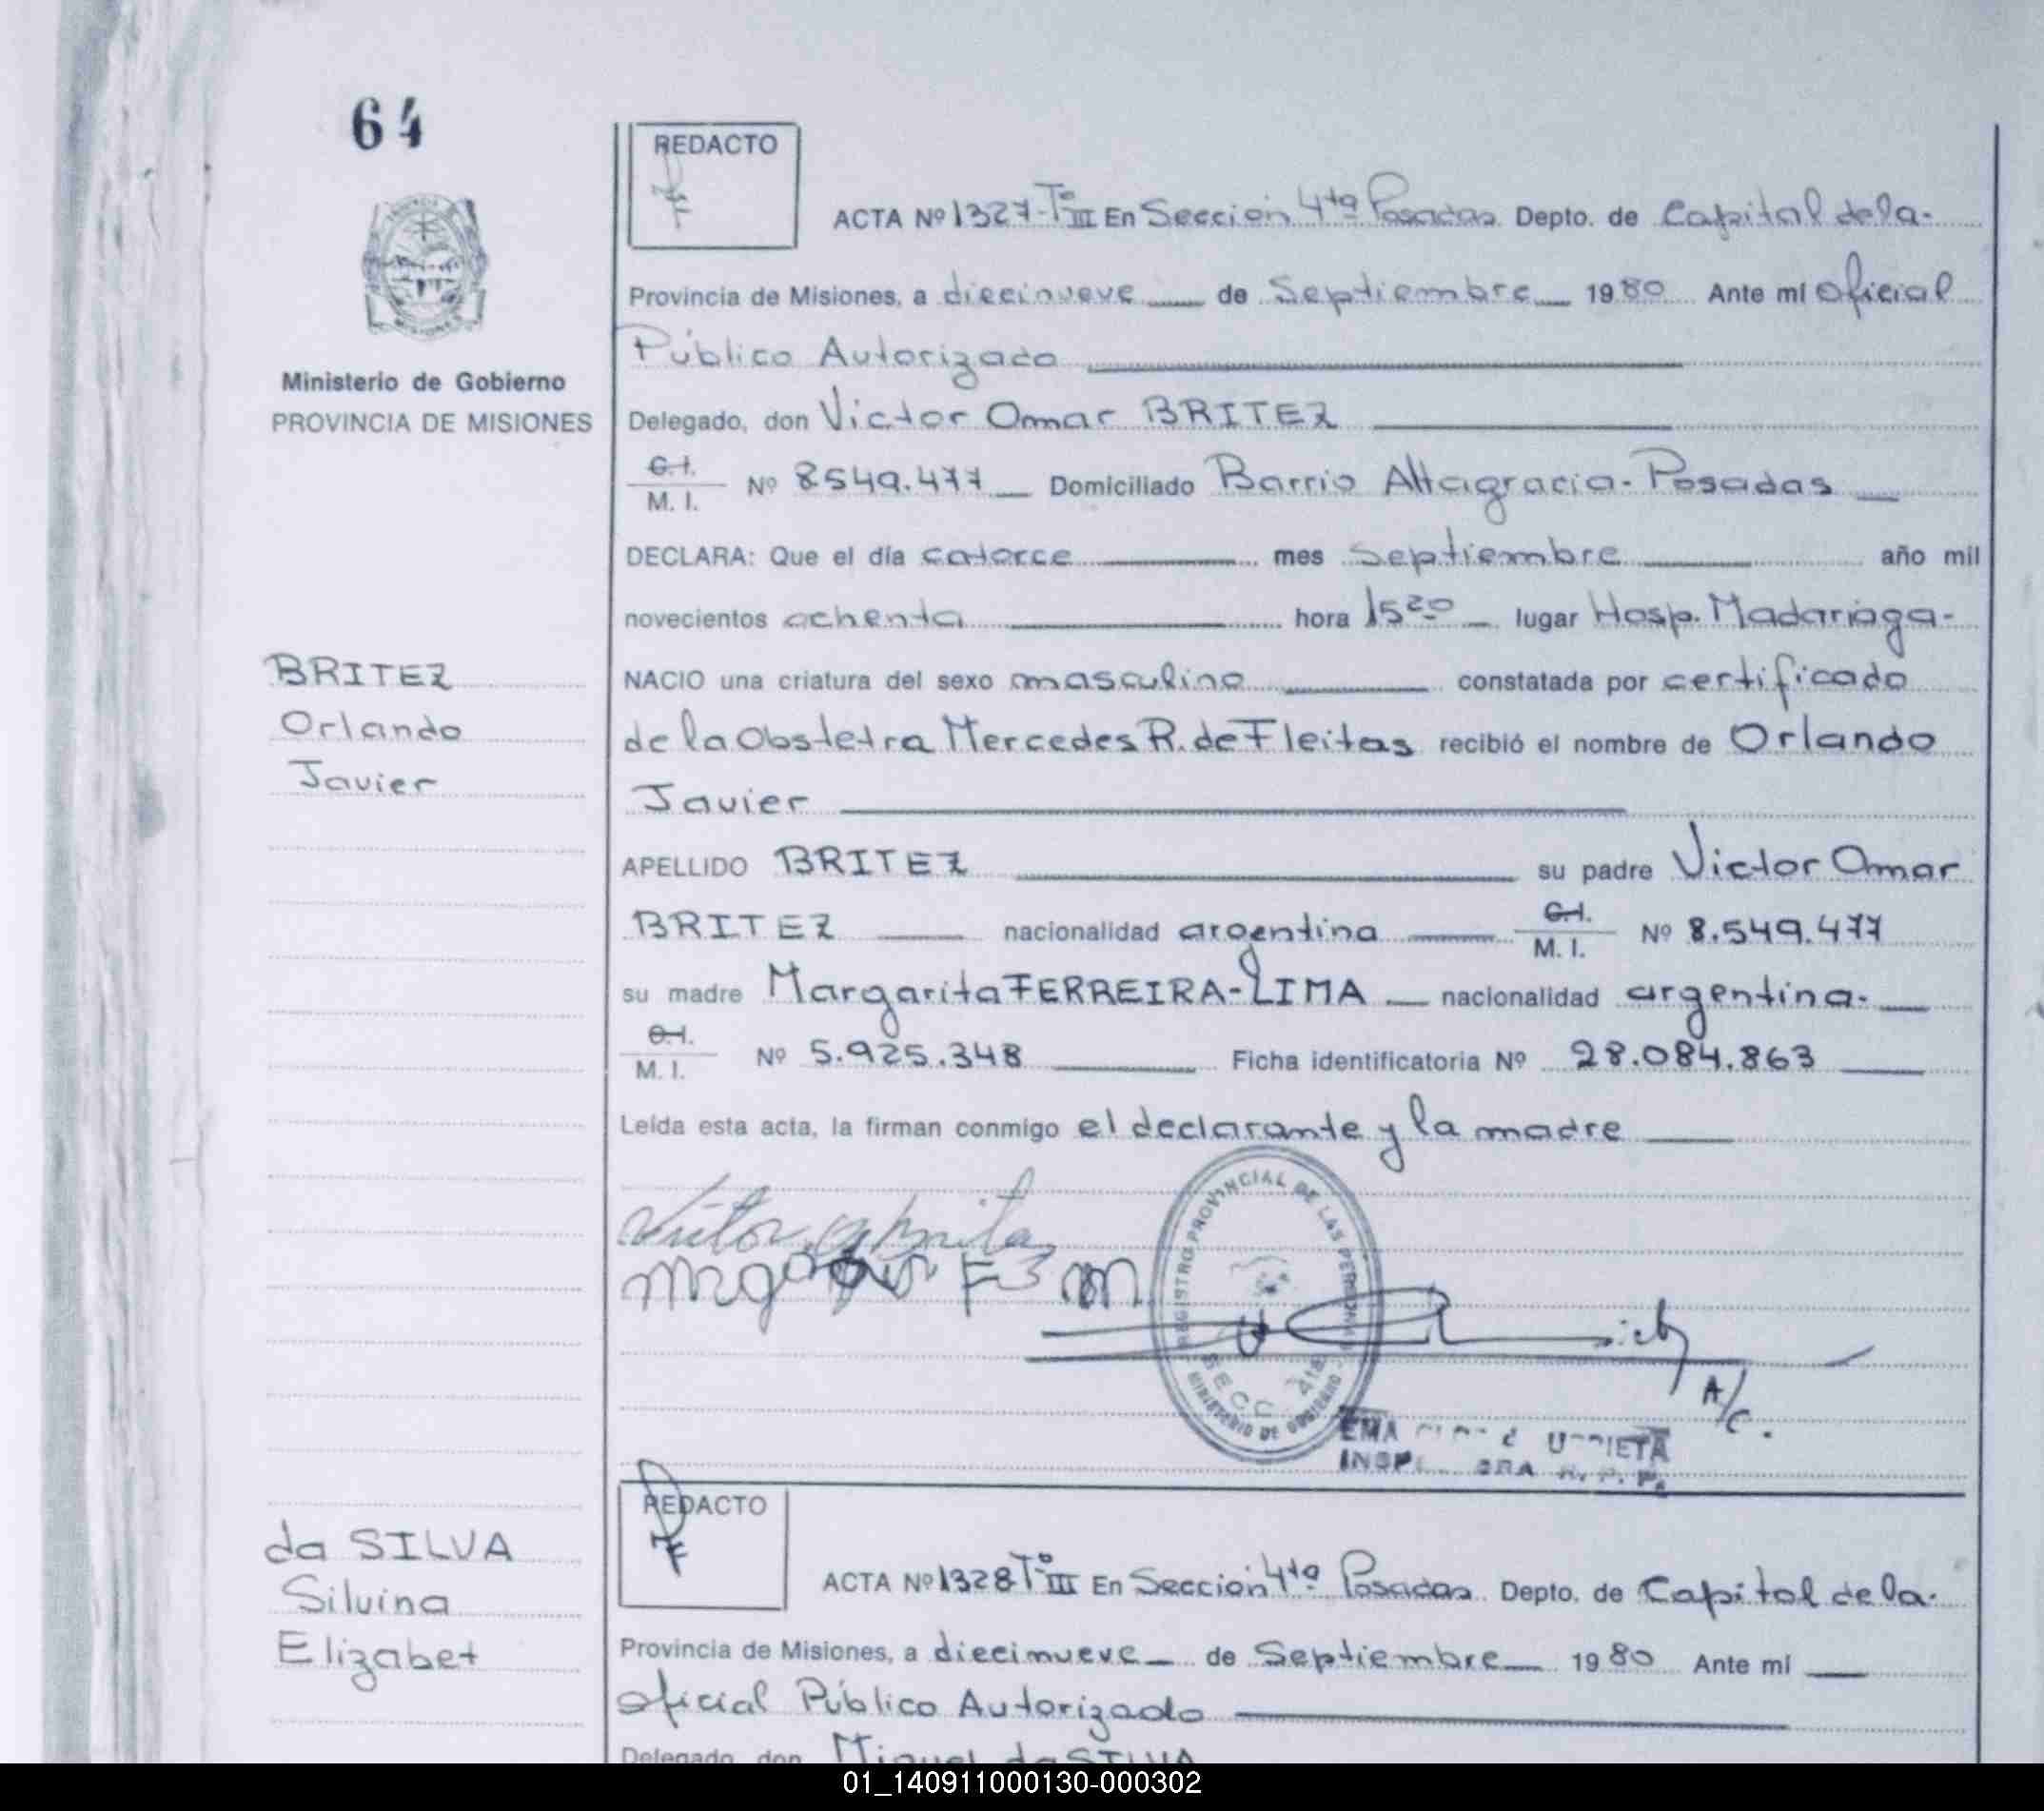 64
Ministerio de Gobierno
PROVINCIA DE MISIONES
REDACTO
ACTA Nº 1327-Tº III En Sección 4ta Posadas Depto. de Capital de la-
Provincia de Misiones, a diecinueve de Septiembre 1980 Ante mi Oficial
Público Autorizado
Delegado, don Victor Omar BRITEZ
C.I.
M. I. Nº 8549.477 Domiciliado Barrio Altagracia-Posadas
DECLARA: Que el día catorce mes Septiembre año mil
novecientos ochenta hora 15 20 lugar Hosp. Madariaga-
BRITEZ
Orlando
Javier
NACIO una criatura del sexo masculino constatada por certificado
de la Obstetra Mercedes R. de Fleitas recibió el nombre de Orlando
Javier
APELLIDO BRITEZ su padre Victor Omar
BRITEZ nacionalidad argentina C.I. M. I. Nº 8.549.477
su madre Margarita FERREIRA-LIMA nacionalidad argentina-
C.I.
M. I. Nº 5.925.348 Ficha identificatoria Nº 28.084.863
Leída esta acta, la firman conmigo el declarante y la madre
REGISTRO PROVINCIAL DE LAS PERSONAS
SECC. 4ta
MINISTERIO DE GOBIERNO
A/C.
EMA
REDACTO
da SILVA
Silvina
Elizabet
ACTA Nº 1328 Tº III En Sección 4ta Posadas Depto. de Capital de la-
Provincia de Misiones, a diecinueve de Septiembre 1980 Ante mi
oficial Público Autorizado
Delegado, don Miguel da SILVA
01_140911000130-000302